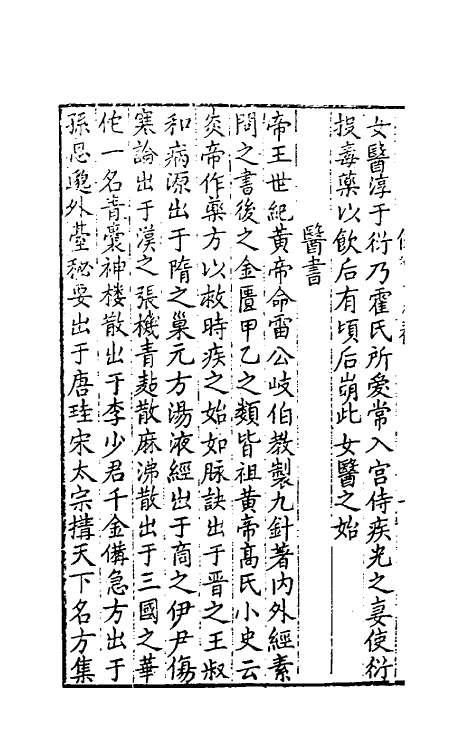 女醫淳于衍乃霍氏所愛常入宮侍疾光之妻使衍
投毒藥以飲后有頃后崩此女醫之始
醫書
帝王世紀黃帝命雷公岐伯教製九針著內外經素
問之書後之金匱甲乙之類皆祖黃帝高氏小史云
炎帝作藥方以救時疾之始如脉訣出于晉之王叔
和病源出于隋之巢元方湯液經出于商之伊尹傷
寒論出于漢之張機青黏散麻沸散出于三國之華
佗一名青囊神楼散出于李少君千金備急方出于
孫思邈外臺秘要出于唐
宋太宗搆天下名方集